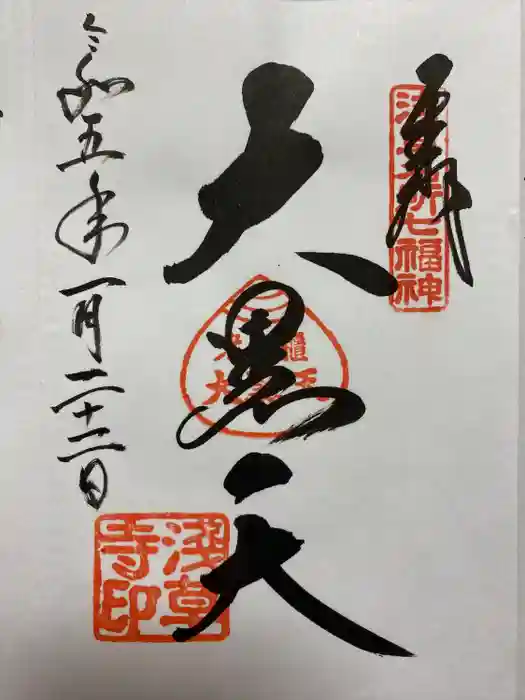 奉拝
浅草名所七福神
大黒天
米櫃
大黒天
令和五年一月二十二日
浅草
寺印